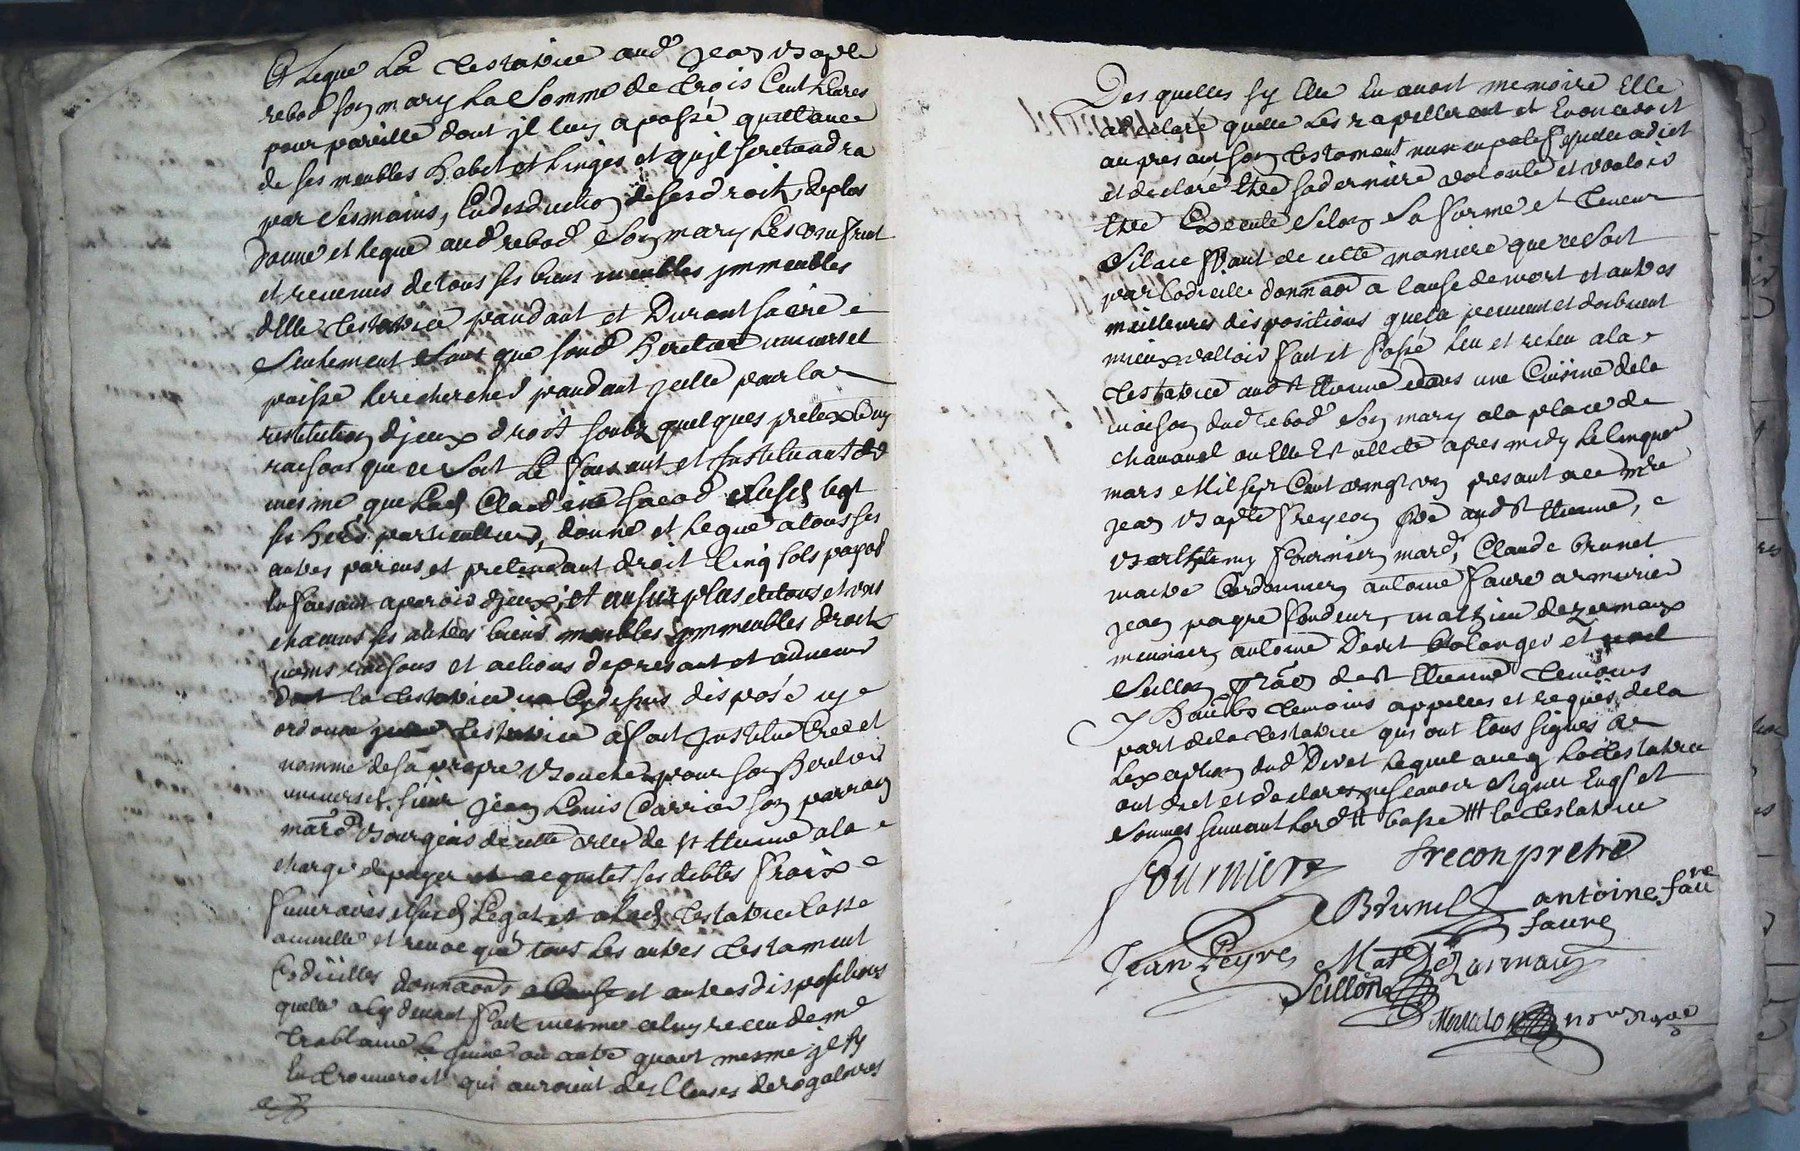 Et legue La Testatrice aud Jean Bapte
rebod son mary la Somme de Trois Cent Livres
pour pareille dont jl luy a passé quittance
de ses meubles habit et linges et qujl se retandra
par Ses mains, En desduction de ses droits, de plus
Donne et legue aud rebod Son mary Les Usufruit
et revenus de tous ses biens meubles jmmeubles
delle Testatrice pandant et Durant sa vie
Seulement Sans que sond heretier universel
puisse le rechercher pandant jcelle pour la
restitution djceux droit soubz quelques pretexte ny
raisons que ce soit Le faisant et Instituant de
mesme que lad Claudine sacod
ses hers particulliers, donne et legue a tous ses
autres parens et pretendant droit Cinq sols payable
En faisant aparoir djceux, et au surplus de tous et uns
chacuns ses autres biens meubles jmmeubles droits
noms raisons et actions de presant et advenir
dont la testatrice na Cydessus disposé ny
ordonné testatrice a fait Institué Créé et
nommé de sa propre Bouche pour son Heretier
universel sieur Jean Louis Carrier son parrain
mard Bourgeois de cette ville de St Etienne a la
charge de payer et acquiter ses debtes fraix
funeraires et legat et a lad Testatrice Casse
annulle et revoque tous les autres Testament
Codicilles donnaons a Cause et autres dispositions
quelle a Cy devant fait mesme celuy receu de Me
Trablaine le jeune ou autre quant mesme jl sy
En trouveroit qui auroient des Clauses derogatoires
Desquelles sy Elle En avoit memoire Elle
a declaré quelle Les rapelleroit et Enonceroit
au presant son Testament nuncupatif quelle a dict
et declaré Etre sa derniere volonte et vouloir
Etre Executé Selon Sa forme et Teneur
Silace faut de cette maniere que ce soit
par Codicille donnaon a Cause de mort et autres
meilleures dispositions que ca peuvent et doibvent
mieux valloir fait et passé leu et releu a la
Testatrice aud St Etienne dans une Cuisine de la
maison dud rebod Son mary a la place de
chavanel ou Elle Est allitée apres midy le Cinque
mars Mil sept Cent vingt un presant a ce mre
Jean Bapte freycon pbre aud St Etienne,
Barthelemy fournier mard, Claude Brunet
maitre Cordonnier antoine faure armurier
Jean payre fondeur, mathieu dezermaux
meunier, antoine Devet Bolanger et noel
Seillon, praon de St Etienne Temoins
Y Habitans temoins appelles et requis de la
part de la Testatrice qui ont tous signes a
Lexception dud Divet lequel avecq la testatrice
ont dict et declarer ne scavoir Signer Enqs et
Sommes suivant lord
Fournier Freconpretre
Brunel antoine faure
faure
Jean Peyre Mat Dézarmaux
Seillon